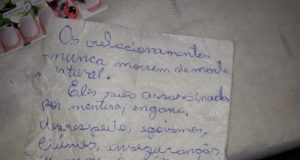 Os relacionamentos
nunca morrem de morte
natural.
Eles são assassinados
por mentira, engano,
desrespeito, egoísmo,
ciumes, inseguranças